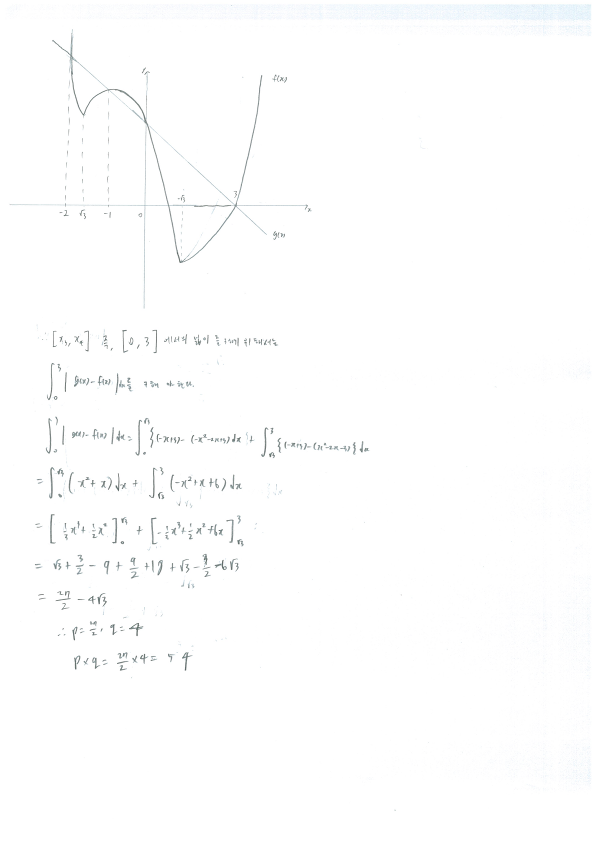 y
f(x)
-2 √3 -1 0 -√3 3 x
g(x)
∴ [x₃, x₄] 즉, [0, 3] 에서의 넓이를 구하기 위해서는
∫₀³ | g(x) - f(x) | dx를 구해야 한다.
∫₀³ | g(x) - f(x) | dx = ∫₀^√3 {(-x+3) - (-x²-2x+3) dx + ∫_√3^3 {(-x+3) - (x²-2x-3)} dx
= ∫₀^√3 (x² + x) dx + ∫_√3^3 (-x² + x + 6) dx
= [ 1/3 x³ + 1/2 x² ]₀^√3 + [ -1/3 x³ + 1/2 x² + 6x ]_√3^3
= √3 + 3/2 - 9 + 9/2 + 18 + √3 - 3/2 - 6√3
= 27/2 - 4√3
∴ p = 27/2, q = 4
p × q = 27/2 × 4 = 54